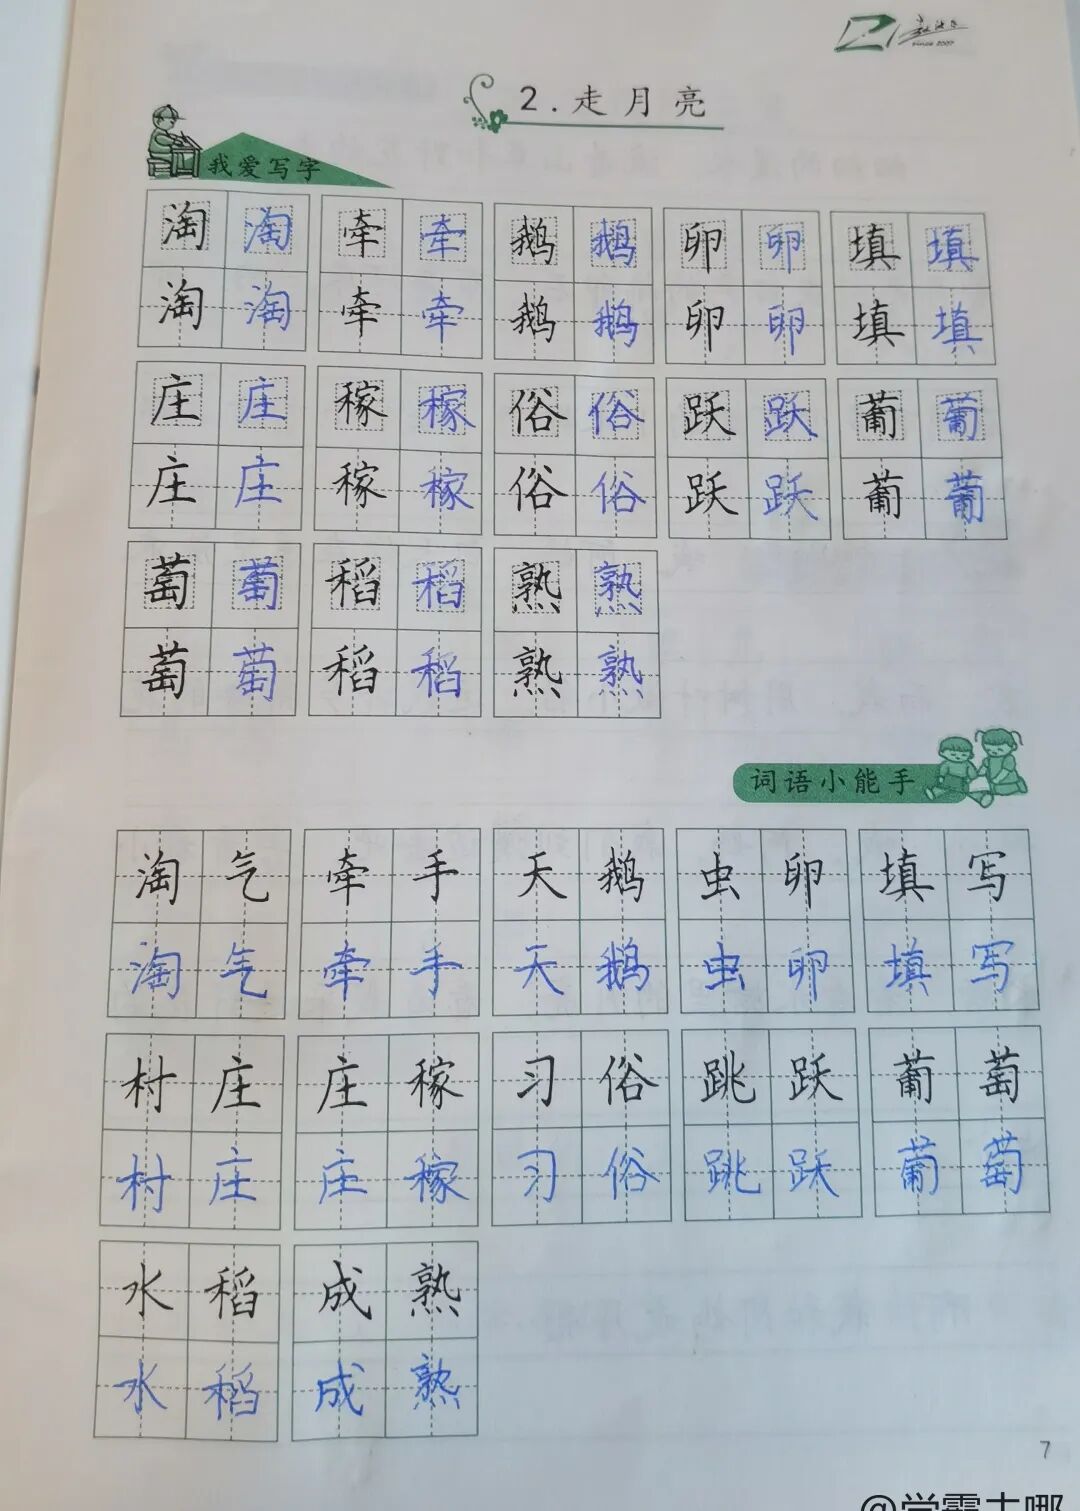 since 2007
2.走月亮
我爱写字
淘 淘 牵 牵 鹅 鹅 卵 卵 填 填
淘 淘 牵 牵 鹅 鹅 卵 卵 填 填
庄 庄 稼 稼 俗 俗 跃 跃 葡 葡
庄 庄 稼 稼 俗 俗 跃 跃 葡 葡
萄 萄 稻 稻 熟 熟
萄 萄 稻 稻 熟 熟
词语小能手
淘气 牵手 天鹅 虫卵 填写
淘气 牵手 天鹅 虫卵 填写
村庄 庄稼 习俗 跳跃 葡萄
村庄 庄稼 习俗 跳跃 葡萄
水稻 成熟
水稻 成熟
7